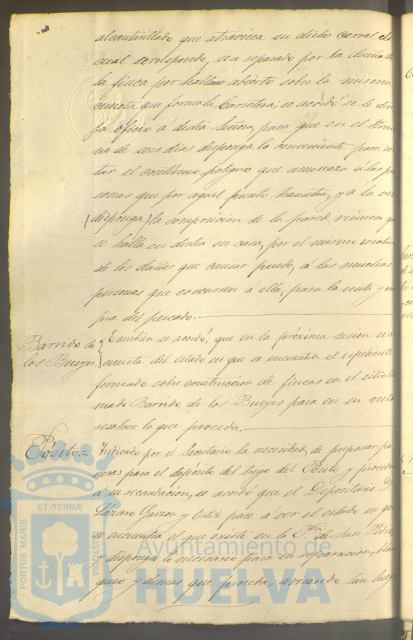 alcantarillado que atraviesa su dicho corral al
cual corresponde, sea separado por la dueña de
la finca por hallarse abierto sobre la misma
cuneta que forma la Carretera, se acordó se le diri
ja oficio á dicha Señora, para que en el térmi
no de seis dias disponga lo conveniente para evi
tar el contínuo peligro que amenaza á las per
sonas que por aquel punto transitan, y á la vez
disponga la composicion de la pared ruinosa q.
se halla en dicha su casa, por el mismo motivo
de los daños que causar puede, á las muchas
personas que concurren á ella, para la venta y com
pra del pescado.
Barrido de
los Bueyes
Tambien se acordó, que en la próxima sesion se dé
cuenta del estado en que se encuentra el espediente
formado sobre construccion de fincas en el sitio lla
mado Barrido de los Bueyes para en su vista
resolver lo que proceda.
Pósito.=
Indicado por el Secretario la necesidad, de preparar pa
neras para el depósito del trigo del Pósito, y proceder
á su recaudacion, se acordó que el Depositario
Lozano Garzon y pase á ver el estado en que
se encuentra el que existe en la de San Pedro,
y disponga lo necesario para su reparacion, blan
queo y demas que proceda, avisando tan luego
ET TERRÆ
PORTUS MARIS
CUSTODIA
Ayuntamiento de
HUELVA